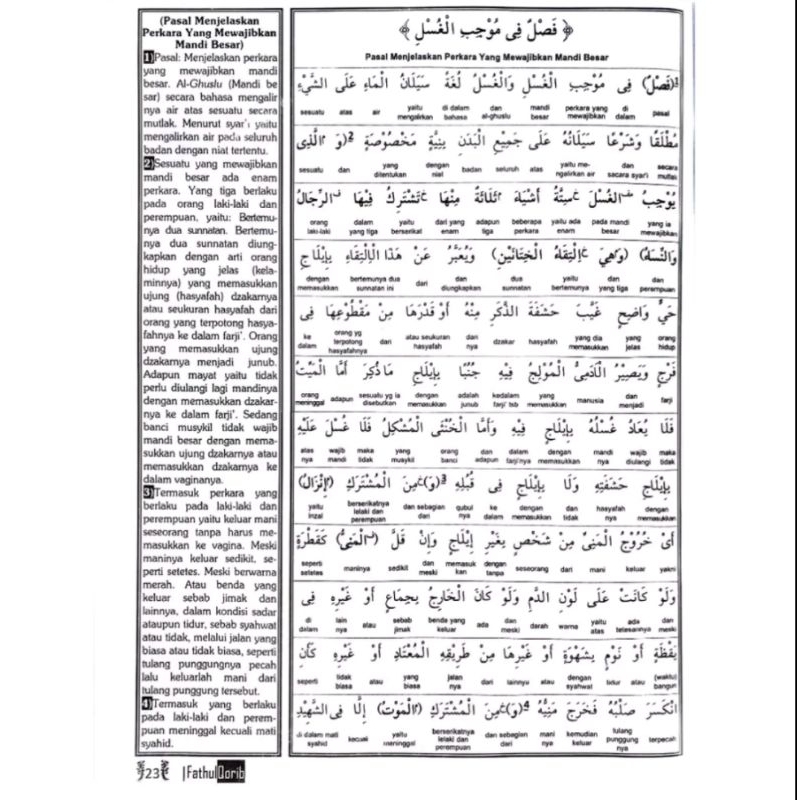 (Pasal Menjelaskan
Perkara Yang Mewajibkan
Mandi Besar)
1) Pasal: Menjelaskan perkara
yang mewajibkan mandi
besar. Al-Ghuslu (Mandi be
sar) secara bahasa mengalir
nya air atas sesuatu secara
mutlak. Menurut syar'i yaitu
mengalirkan air pada seluruh
badan dengan niat tertentu.
2) Sesuatu yang mewajibkan
mandi besar ada enam
perkara. Yang tiga berlaku
pada orang laki-laki dan
perempuan, yaitu: Bertemu-
nya dua sunnatan. Bertemu-
nya dua sunnatan diung-
kapkan dengan arti orang
hidup yang jelas (kela-
minnya) yang memasukkan
ujung (hasyafah) dzakarnya
atau seukuran hasyafah dari
orang yang terpotong hasya-
fahnya ke dalam farji'. Orang
yang memasukkan ujung
dzakarnya menjadi junub.
Adapun mayat yaitu tidak
perlu diulangi lagi mandinya
dengan memasukkan dzakar-
nya ke dalam farji'. Sedang
banci musykil tidak wajib
mandi besar dengan mema-
sukkan ujung dzakarnya atau
memasukkan dzakarnya ke
dalam vaginanya.
3) Termasuk perkara yang
berlaku pada laki-laki dan
perempuan yaitu keluar mani
seseorang tanpa harus me-
masukkan ke vagina. Meski
maninya keluar sedikit, se-
perti setetes. Meski berwarna
merah. Atau benda yang
keluar sebab jimak dan
lainnya, dalam kondisi sadar
ataupun tidur, sebab syahwat
atau tidak, melalui jalan yang
biasa atau tidak biasa, seperti
tulang punggungnya pecah
lalu keluarlah mani dari
tulang punggung tersebut.
4) Termasuk yang berlaku
pada laki-laki dan perem-
puan meninggal kecuali mati
syahid.
﴿ فَصْلٌ فِى مُوْجِبِ الْغُسْلِ ﴾
Pasal Menjelaskan Perkara Yang Mewajibkan Mandi Besar
1(فَصْلٌ) فِى مُوْجِبِ الْغُسْلِ وَالْغُسْلُ لُغَةً سَيَلَانُ الْمَاءِ عَلَى الشَّيْءِ
pasal di dalam perkara yang mewajibkan mandi besar dan al-ghuslu di dalam bahasa yaitu mengalirkan air atas sesuatu
مُطْلَقًا وَشَرْعًا سَيَلَانُهُ عَلَى جَمِيْعِ الْبَدَنِ بِنِيَّةٍ مَخْصُوْصَةٍ 2(وَ الَّذِى
secara mutlak dan secara syar'i yaitu me- ngalirkan air atas seluruh badan dengan niat yang ditentukan dan sesuatu
يُوْجِبُ الْغُسْلَ سِتَّةُ أَشْيَاءَ ثَلَاثَةٌ مِنْهَا تَشْتَرِكُ فِيْهَا الرِّجَالُ
yang ia mewajibkan pada mandi besar yaitu ada enam beberapa perkara adapun tiga dari yang enam yaitu berserikat dalam yang tiga orang laki-laki
وَالنِّسَاءُ (وَهِيَ الْتِقَاءُ الْخِتَانَيْنِ) وَيُعَبَّرُ عَنْ هٰذَا الْإِلْتِقَاءِ بِإِيْلَاجِ
dan perempuan dan yang tiga yaitu bertemunya dua sunnatan dan diungkapkan dari bertemunya dua sunnatan ini dengan memasukkan
حَيٍّ وَاضِحٍ غَيَّبَ حَشَفَةَ الذَّكَرِ مِنْهُ أَوْ قَدْرَهَا مِنْ مَقْطُوْعِهَا فِى
orang hidup yang jelas yang dia memasukkan hasyafah dzakar dari nya atau seukuran hasyafah dari orang yg terpotong hasyafahnya ke dalam
فَرْجٍ وَيَصِيْرُ الْآدَمِيُّ الْمُوْلَجُ فِيْهِ جُنُبًا بِإِيْلَاجِ مَاذُكِرَ أَمَّا الْمَيِّتُ
farji dan menjadi manusia yang memasukkan kedalam farji tsb adalah junub dengan memasukkan sesuatu yg ia disebutkan adapun orang meninggal
فَلَا يُعَادُ غُسْلُهُ بِإِيْلَاجٍ فِيْهِ وَأَمَّا الْخُنْثَى الْمُشْكِلُ فَلَا غُسْلَ عَلَيْهِ
maka tidak wajib diulangi mandi nya dengan memasukkan dalam farjinya dan adapun orang banci yang musykil maka tidak wajib mandi atas nya
بِإِيْلَاجِ حَشَفَتِهِ وَلَا بِإِيْلَاجٍ فِى قُبُلِهِ 3(وَ)مِنَ الْمُشْتَرَكِ (إِنْزَالُ)
dengan memasukkan hasyafah nya dan tidak dengan memasukkan ke dalam qubul nya dan sebagian dari berserikatnya lelaki dan perempuan yaitu inzal
أَىْ خُرُوْجُ الْمَنِيِّ مِنْ شَخْصٍ بِغَيْرِ إِيْلَاجٍ وَإِنْ قَلَّ (الْمَنِيُّ) كَقَطْرَةٍ
yakni keluar mani dari seseorang dengan tanpa memasuk kan dan meski sedikit maninya seperti setetes
وَلَوْ كَانَتْ عَلَى لَوْنِ الدَّمِ وَلَوْ كَانَ الْخَارِجُ بِجِمَاعٍ أَوْ غَيْرِهِ فِى
dan meski ada tetesannya yaitu atas warna darah dan meski ada benda yang keluar sebab jimak atau lain nya di dalam
يَقْظَةٍ أَوْ نَوْمٍ بِشَهْوَةٍ أَوْ غَيْرِهَا مِنْ طَرِيْقِهِ الْمُعْتَادِ أَوْ غَيْرِهِ كَأَنِ
(waktu) bangun atau tidur dengan syahwat atau lainnya dari jalan nya yang biasa atau tidak biasa seperti
انْكَسَرَ صُلْبُهُ فَخَرَجَ مَنِيُّهُ 4(وَ)مِنَ الْمُشْتَرَكِ (الْمَوْتُ) إِلَّا فِى الشَّهِيْدِ
terpecah tulang punggung nya kemudian keluar mani nya dan sebagian dari berserikatnya lelaki dan perempuan yaitu meninggal kecuali di dalam mati syahid
23 |Fathul Qorib